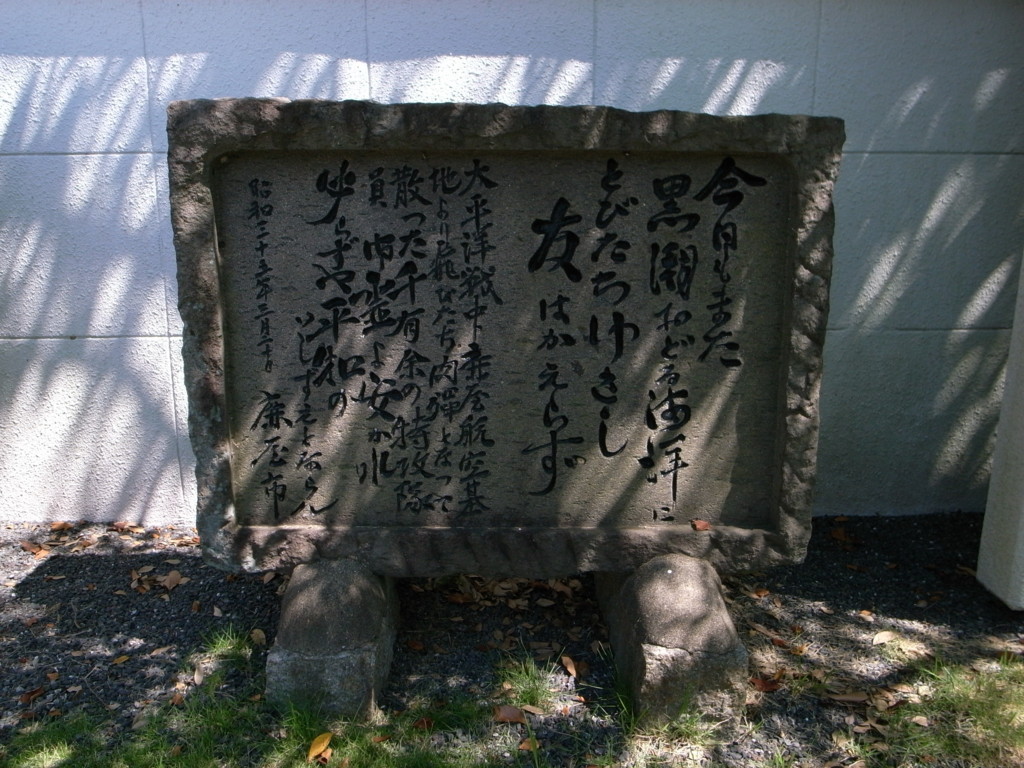 今日もまた
黒潮おどる海洋に
とびたちゆきし
友はかえらず
太平洋戦中鹿屋航空基
地より飛びたち肉彈となって
散った千有余の特攻隊
員 御霊よ安かれ
必らずや平和の
いしずえとならん
昭和三十三年三月二十日
鹿屋市